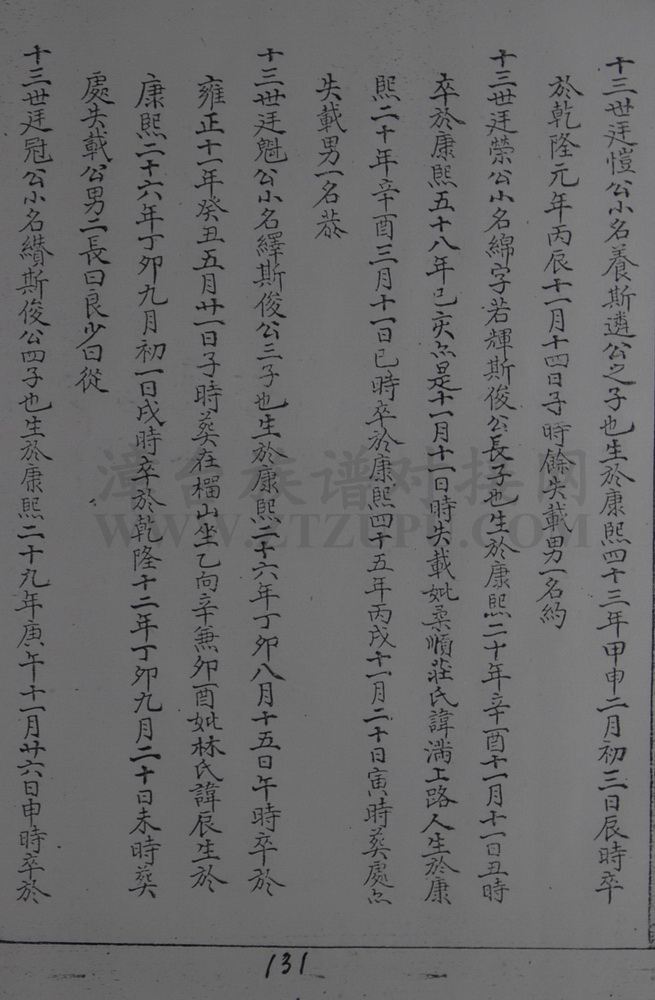 十三世廷愷公小名養斯遴公之子也生於康熙四十三年甲申二月初三日辰時卒
於乾隆元年丙辰十一月十四日子時餘失載男一名約
十三世廷榮公小名綿字若輝斯俊公長子也生於康熙二十年辛酉十一月十一日丑時
卒於康熙五十八年己亥亦是十一月十一日時失載妣柔順莊氏諱滿上路人生於康
熙二十年辛酉三月十一日巳時卒於康熙四十五年丙戌十一月二十日寅時葬處亦
失載男一名恭
十三世廷魁公小名繹斯俊公三子也生於康熙二十六年丁卯八月十五日午時卒於
雍正十一年癸丑五月廿一日子時葬在榴山坐乙向辛兼卯酉妣林氏諱辰生於
康熙二十六年丁卯九月初一日戌時卒於乾隆十二年丁卯九月二十日未時葬
處失載公男二長曰良少曰從
十三世廷冠公小名纘斯俊公四子也生於康熙二十九年庚午十一月廿六日申時卒於
131
漳台族谱对接网
WWW.ZTZUPU.COM